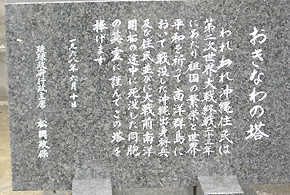 おきなわの塔
われわれ沖縄住民は
第二次世界大戦終戦二十三年
にあたり祖国の繁栄と世界
平和を祈って南洋群島に
おいて戦没した沖縄出身将兵
及び住民並びに大戦前南洋
開拓の途中に死没した同胞
の英霊を謹んでこの塔を
捧げます
一九六八年六月十日
琉球政府行政主席 松岡政保